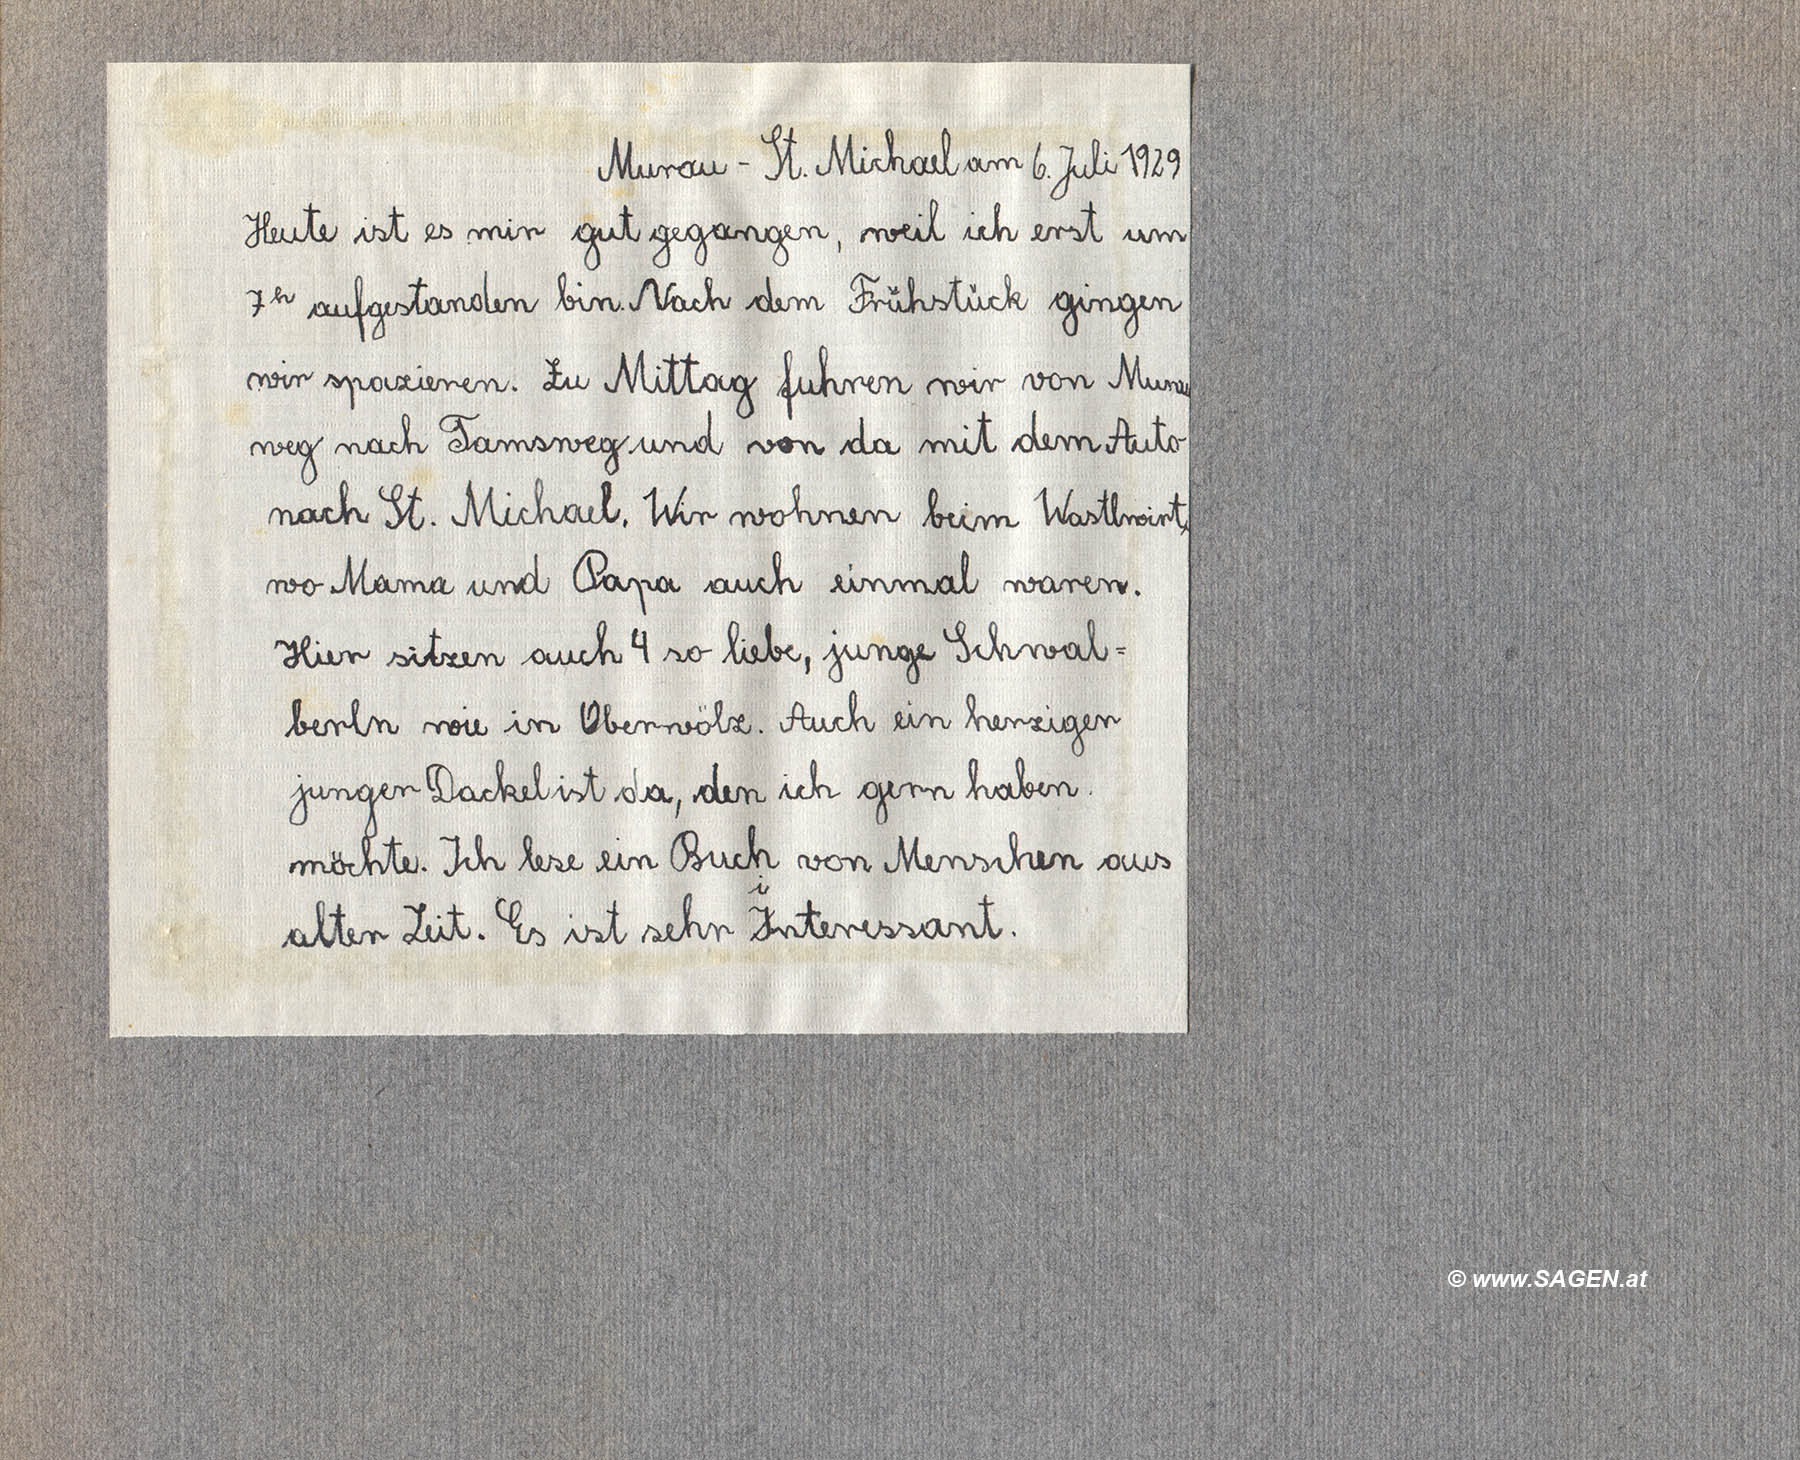 Murau - St. Michael am 6. Juli 1929
Heute ist es mir gut gegangen, weil ich erst um
7h aufgestanden bin. Nach dem Frühstück gingen
wir spazieren. Zu Mittag fuhren wir von Murau
weg nach Tamsweg und von da mit dem Auto
nach St. Michael. Wir wohnen beim Wastlwirt,
wo Mama und Papa auch einmal waren.
Hier sitzen auch 4 so liebe, junge Schwal=
berln wie in Oberwölz. Auch ein herziger
junger Dackel ist da, den ich gern haben
möchte. Ich lese ein Buch von Menschen aus
alter Zeit. Es ist sehr Interessant.
i
© www.SAGEN.at